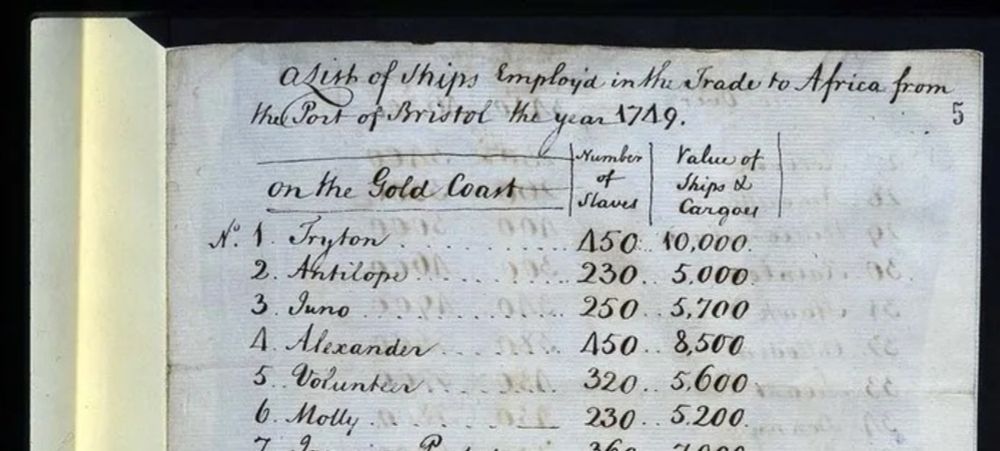 a List of Ships Employ'd in the Trade to Africa from
the Port of Bristol the year 1749.
5
on the Gold Coast
Number
of
Slaves
Value of
Ships &
Cargoes
No. 1. Tryton 450 10,000
2. Antilope 230 5,000
3. Juno 250 5,700
4. Alexander 450 8,500
5. Volunteer 320 5,600
6. Molly 230 5,200
7. 360 7,000